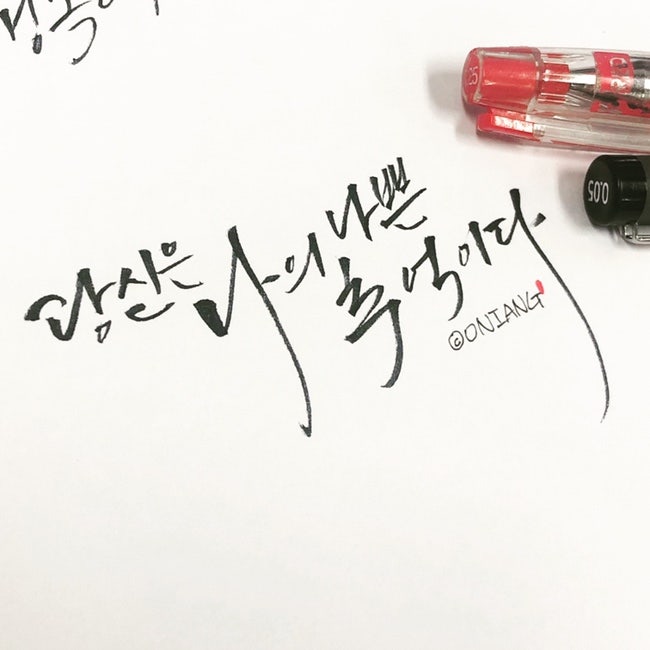 당신은 나의 나쁜
추억이다
©ONIANG
0.05